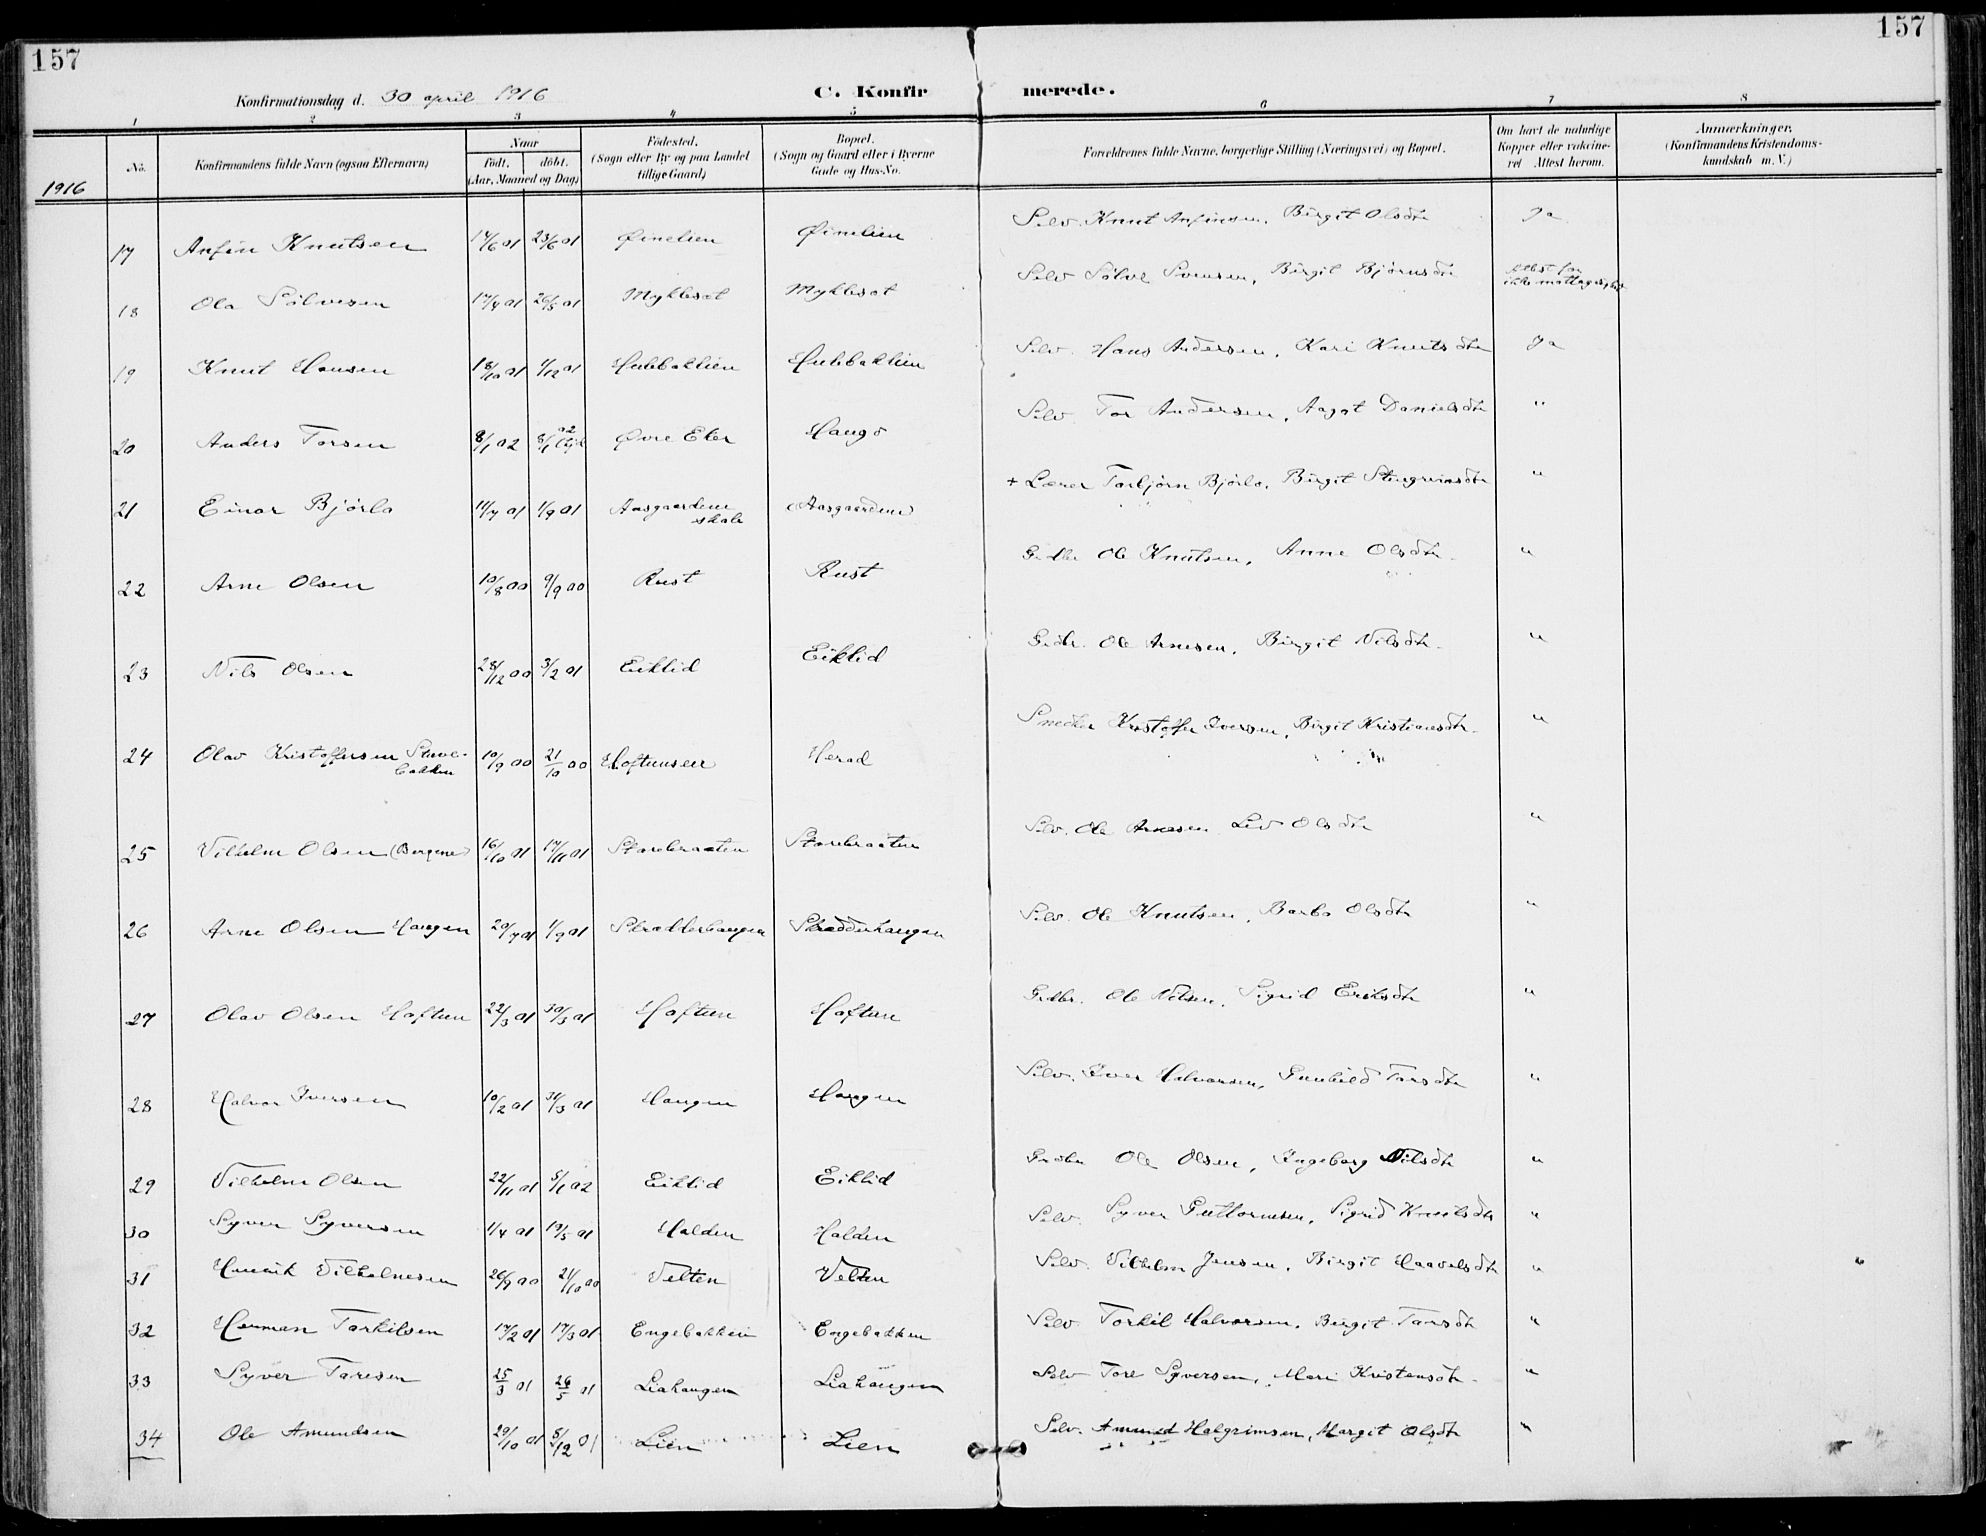 157
157
Konfirmationsdag d. 30 april 1916
C. Konfirmerede.
1 2 3 4 5 6 7 8
No.
Konfirmandens fulde Navn (ogsaa Efternavn)
Naar
födt.
döbt.
(Aar, Maaned og Dag)
Födested.
(Sogn eller By og paa Landet
tillige Gaard)
Bopæl.
(Sogn og Gaard eller i Byerne
Gade og Hus-No.
Forældrenes fulde Navne, borgerlige Stilling (Næringsvei) og Bopæl.
Om havt de naturlige
Kopper eller vaccine-
ret Attest herom.
Anmærkninger.
(Konfirmandens Kristendoms-
kundskab m. V.)
1916
17 Anfin Knutsen 14/6 01 23/6 01 Øinelien Øinelien Selv. Knut Anfinsen, Birgit Olsdtr Ja
18 Ola Sölvesen 17/4 01 26/5 01 Myklesat Myklesat Selv Sölve Svensen, Birgit Björnsdtr Attest for ikke mottagelighet
19 Knut Hansen 18/10 01 1/12 01 Hulebaklien Hulebaklien Selv. Hans Andersen, Kari Knutsdtr Ja
20 Anders Torsen 8/1 02 8/6 02 Øvre Eker Haugö Selv. Tor Andersen, Aagot Danielsdtr "
21 Einar Björlo 14/7 01 1/9 01 Aasgaardene skole (Aasgaardene) + Lærer Torbjörn Björlo, Birgit Stengrimsdtr "
22 Arne Olsen 10/8 00 9/9 00 Rust Rust Grdbr Ole Knutsen, Anne Olsdtr. "
23 Nils Olsen 28/12 00 3/2 01 Eiklid Eiklid Grdbr. Ole Arnesen, Birgit Nilsdtr. "
24 Olav Kristoffersen Stuve-bakken 10/9 00 21/10 00 Hoftunseie Herad Snedker Kristoffer Iversen, Birgit Kristiansdtr. "
25 Vilhelm Olsen (Bergene) 16/10 01 17/11 01 Storebraaten Storebraaten Selv. Ole Arnesen Liv Olsdtr "
26 Arne Olsen Haugen 20/7 01 1/9 01 Skradderhaugen Skradderhaugen Selv. Ole Knutsen, Barbo Olsdtr "
27 Olav Olsen Hoftun 22/3 01 30/3 01 Hoftun Hoftun Grdbr. Ole Nilsen, Sigrid Eriksdtr "
28 Halvor Iversen 10/2 01 31/3 01 Haugen Haugen Selv. Iver Halvorsen, Gunhild Torsdtr "
29 Vilhelm Olsen 22/11 01 5/1 02 Eiklid Eiklid Grdbr Ole Olsen, Ingeborg Nilsdtr "
30 Syver Syversen 1/4 01 19/5 01 Halden Halden Selv. Syver Guttormsen, Sigrid Knutsdtr "
31 Henrik Vilhelmsen 26/9 00 21/10 00 Velten Velten Selv. Vilhelm Jensen, Birgit Haavelsdtr "
32 Herman Torkilsen 14/2 01 17/3 01 Engebakken Engebakken Selv Torkil Halvorsen, Birgit Torsdtr "
33 Syver Toresen 25/3 01 26/5 01 Liahaugen Liahaugen Selv Tore Syversen, Mari Kristensdtr. "
34 Ole Amundsen 29/10 01 5/12 01 Lien Lien Selv. Amund Halgrimsen, Margit Olsdtr "